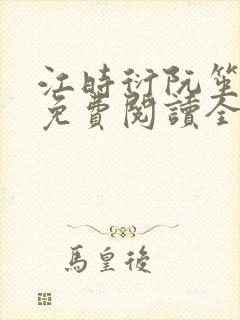 江時衍阮笙
免費閱讀全
馬皇後